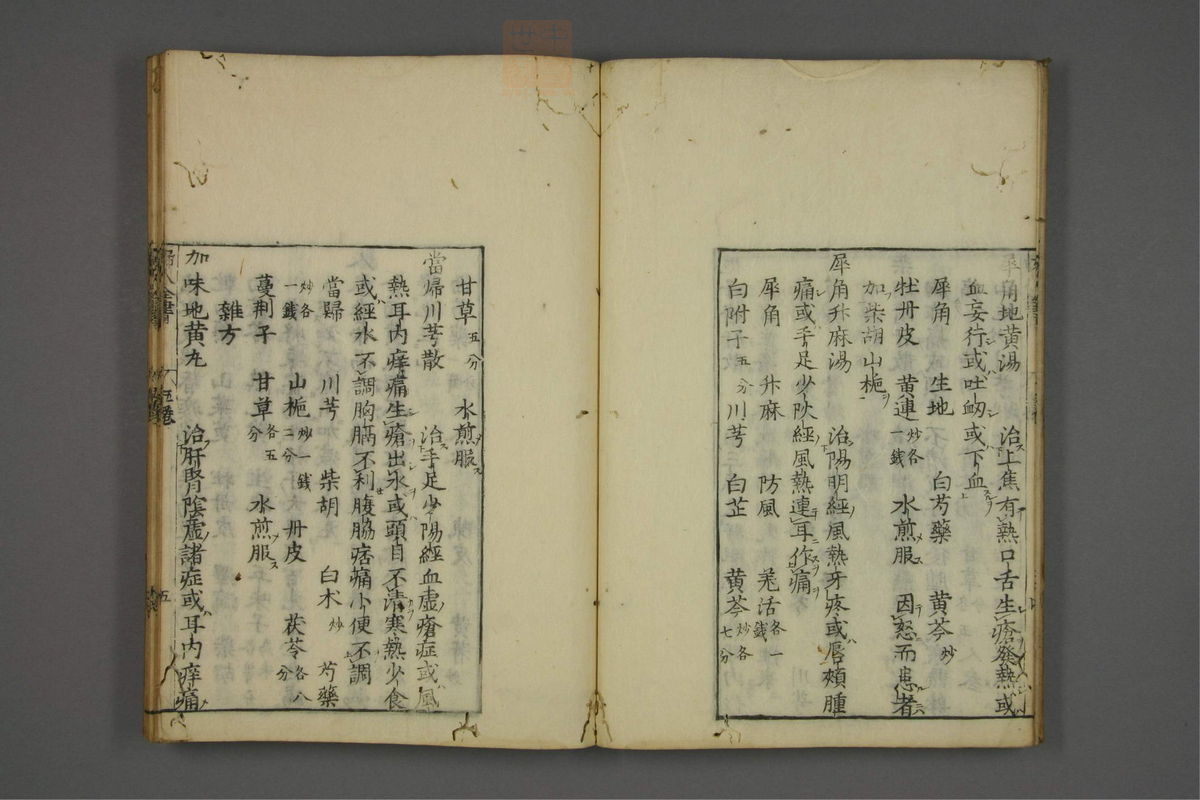 犀角地黄湯　治上焦有熱口舌生瘡發熱或
血妄行或吐衂或下血
犀角　生地　白芍藥　黄芩炒
牡丹皮　黄連炒各一錢　水煎服　因怒而患者
加柴胡山梔
犀角升麻湯　治陽明經風熱牙疼或唇頰腫
痛或手足少陽經風熱連耳作痛
犀角　升麻　防風　羗活各一錢
白附子五分　川芎　白芷　黄芩炒各七分
甘草五分　水煎服
當歸川芎散　治手足少陽經血虚瘡症或風
熱耳内痒痛生瘡出水或頭目不清寒熱少食
或經水不調胸膈不利腹脇痞痛小便不調
當歸　川芎　柴胡　白术炒　芍藥
炒各一錢　山梔炒一錢二分　丹皮　茯苓各八分
蔓荆子　甘草各五分　水煎服
雜方
加味地黄丸　治肝腎陰虚諸症或耳内痒痛